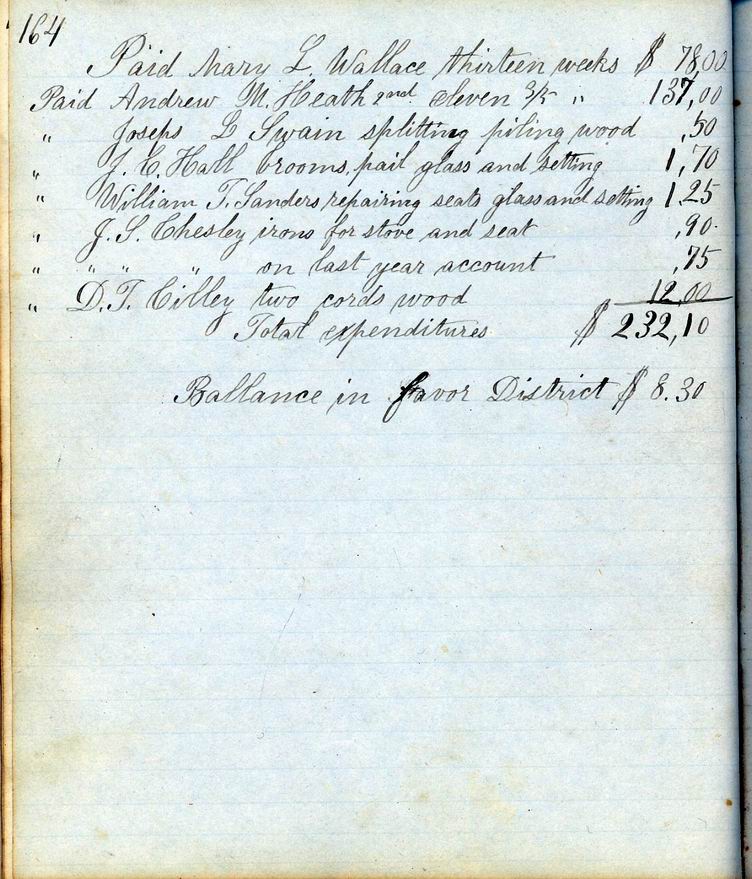 164
Paid Mary L Wallace thirteen weeks $ 78,00
Paid Andrew M. Heath 2nd eleven 2/5 " 137,00
" Joseph L Swain splitting piling wood ,50
" J. C. Hall brooms, pail glass and setting 1,70
" William T. Sanders, repairing seats glass and setting 1,25
" J. S. Chesley irons for stove and seat ,90
" " " " on last year account ,75
" D. T. Cilley two cords wood 12,00
Total expenditures $ 232,10
Ballance in favor District $ 8.30